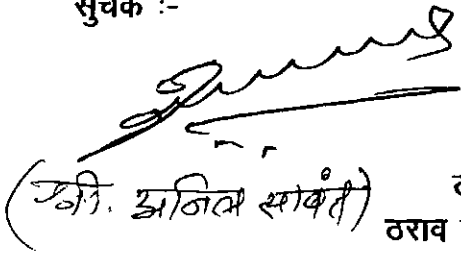 सुचक :-
(श्री. अनिल सावंत)
ठराव